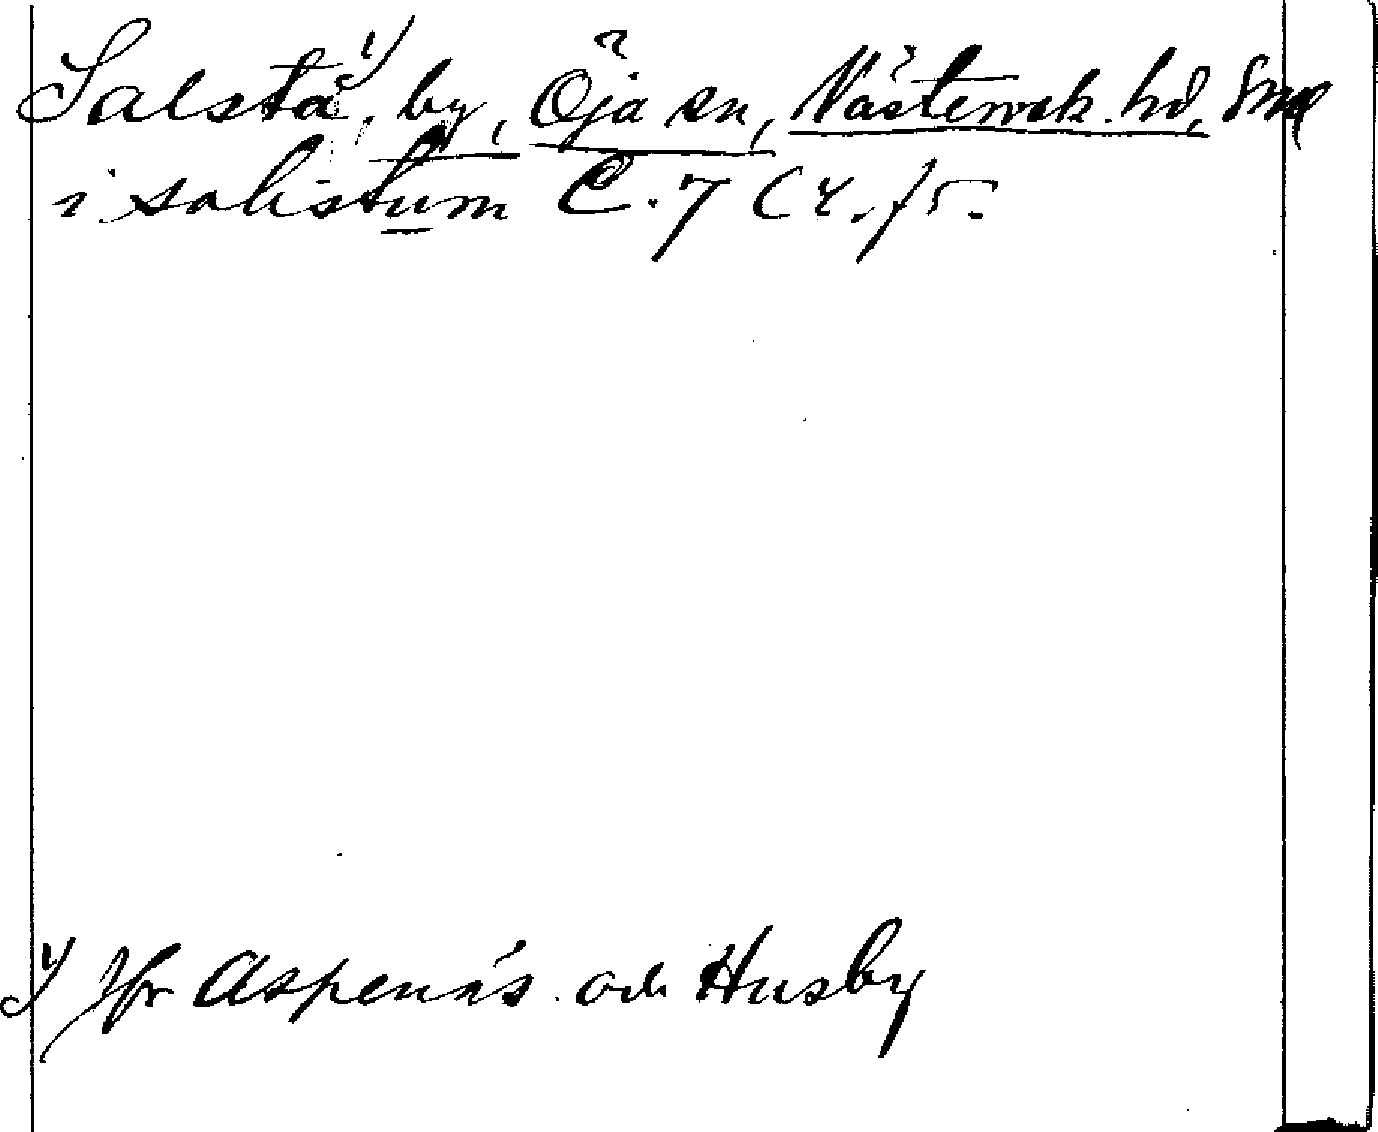 Salsta ¹⁾, by, Öja sn, Västerrek. hd, Sml
i salistum C. 7 (4. f5.
¹⁾ Jfr Aspenäs och Husby